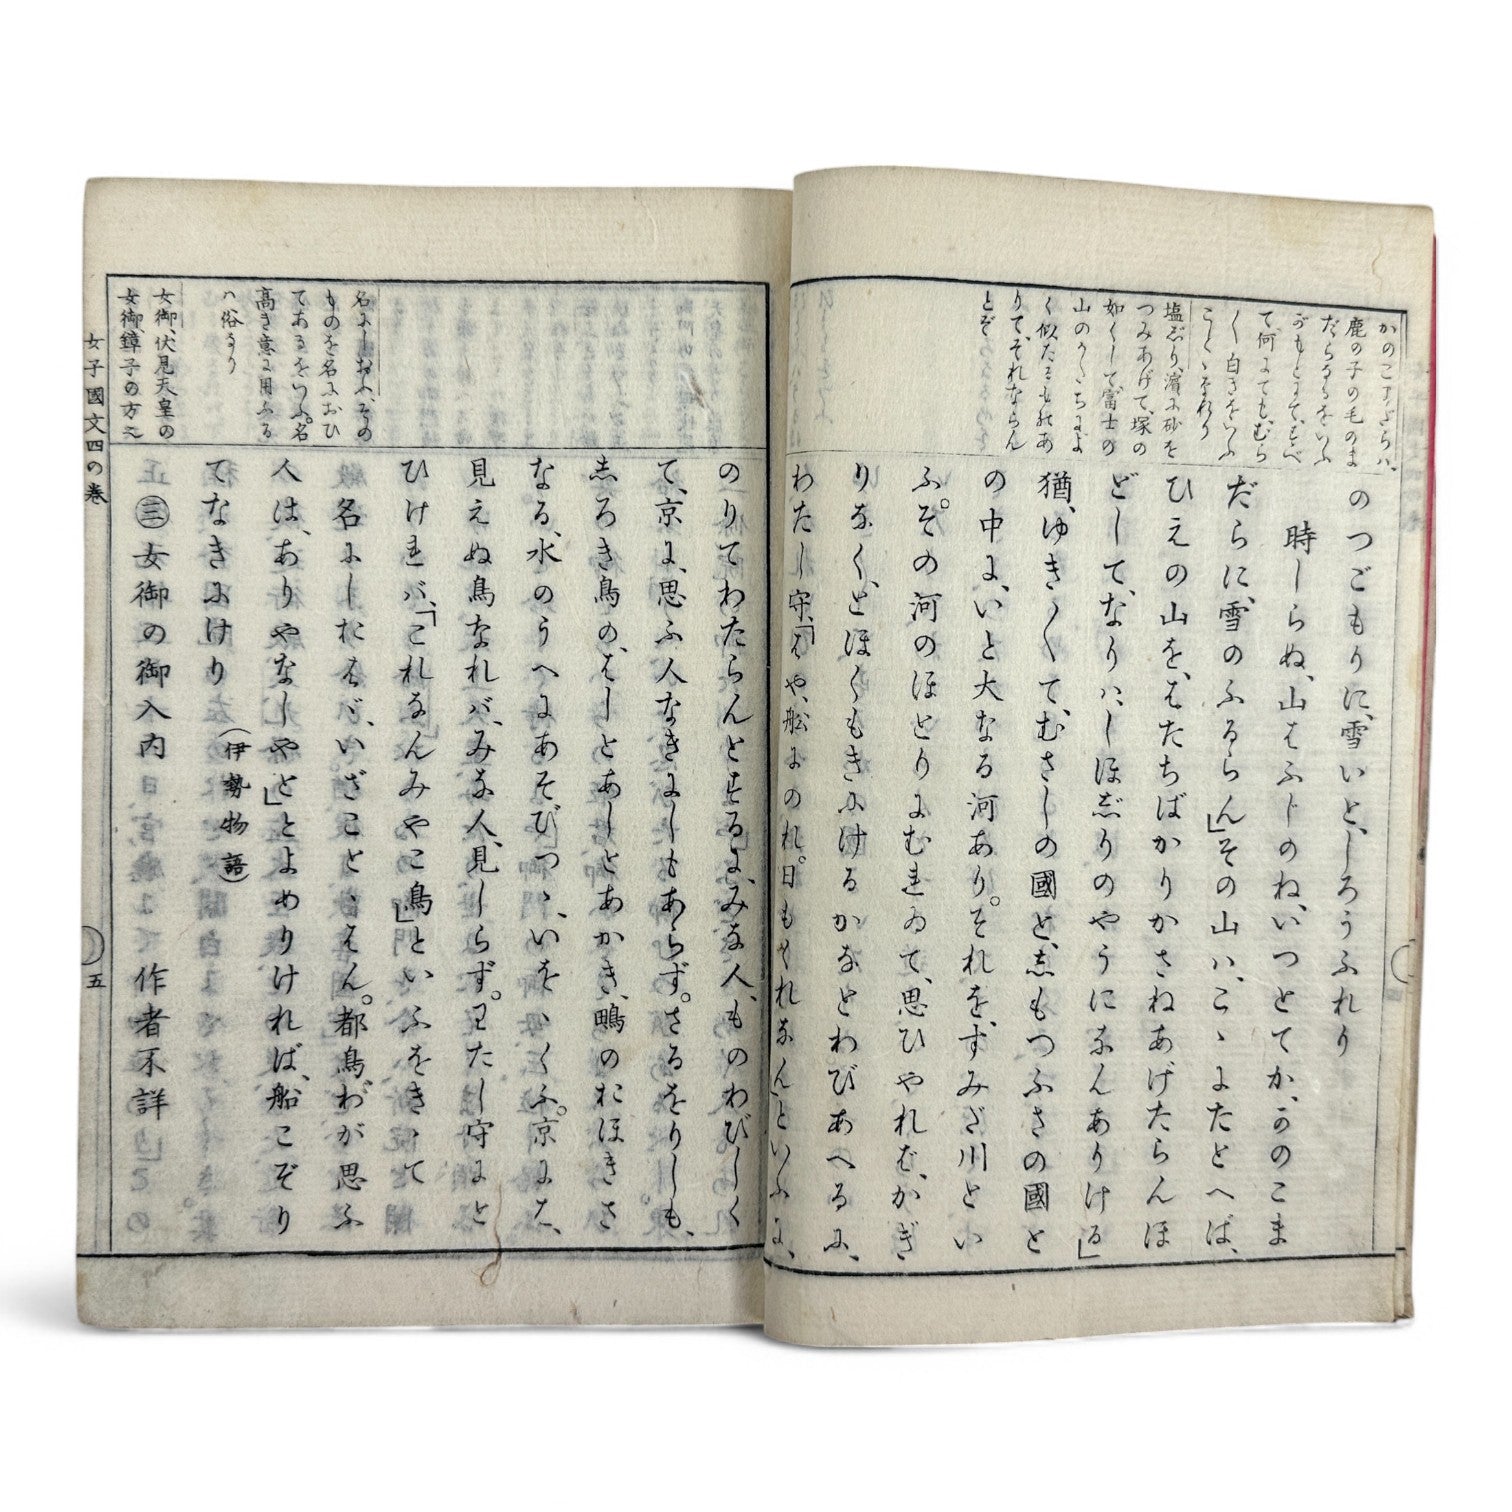 かのこまだらハ、
鹿の子の毛のま
だらなるをいふ
がもとにて、すべ
て何にてもむら
〱白きをいふ
ことゝなれり
塩じり、濱に砂を
つみあげて、塚の
如くして冨士の
山のかたちによ
く似たるものあ
りて、それならん
とぞ
のつごもりに、雪いと、しろうふれり
時しらぬ、山はふじのね、いつとてか、かのこま
だらに、雪のふるらん」その山ハ、こゝにたとへば、
ひえの山を、はたちばかりかさねあげたらんほ
どして、なりハ、しほじりのやうになんありける」
猶、ゆき〱て、むさしの國と、しもつふさの國と
の中に、いと大なる河あり。それを、すみだ川とい
ふ。その河のほとりにむれゐて、思ひやれば、かぎ
りなく、とほくもきにけるかなとわびあへるに、
わたし守、「はや、船にのれ。日もくれなん」といふに、
のりてわたらんとするに、みな人、ものわびしく
て、京に、思ふ人なきにしもあらず。さるをりしも、
しろき鳥の、はしとあしとあかき、鴫のおほきさ
なる、水のうへにあそびつゝ、いをゝくふ。京にハ、
見えぬ鳥なれバ、みな人、見しらず。わたし守にと
ひけれバ、「これなんみやこ鳥」といふをきゝて
名にしおはゞ、いざことゝはん。都鳥わが思ふ
人は、ありやなしやと」とよめりければ、船こぞり
てなきにけり
(伊勢物語)
㊂女御の御入内
作者不詳
名にしおふ、その
ものを名におひ
てあるをいふ。名
高き意に用ふる
ハ俗なり
女御、伏見天皇の
女御、鏱子の方之
女子國文四の巻
五